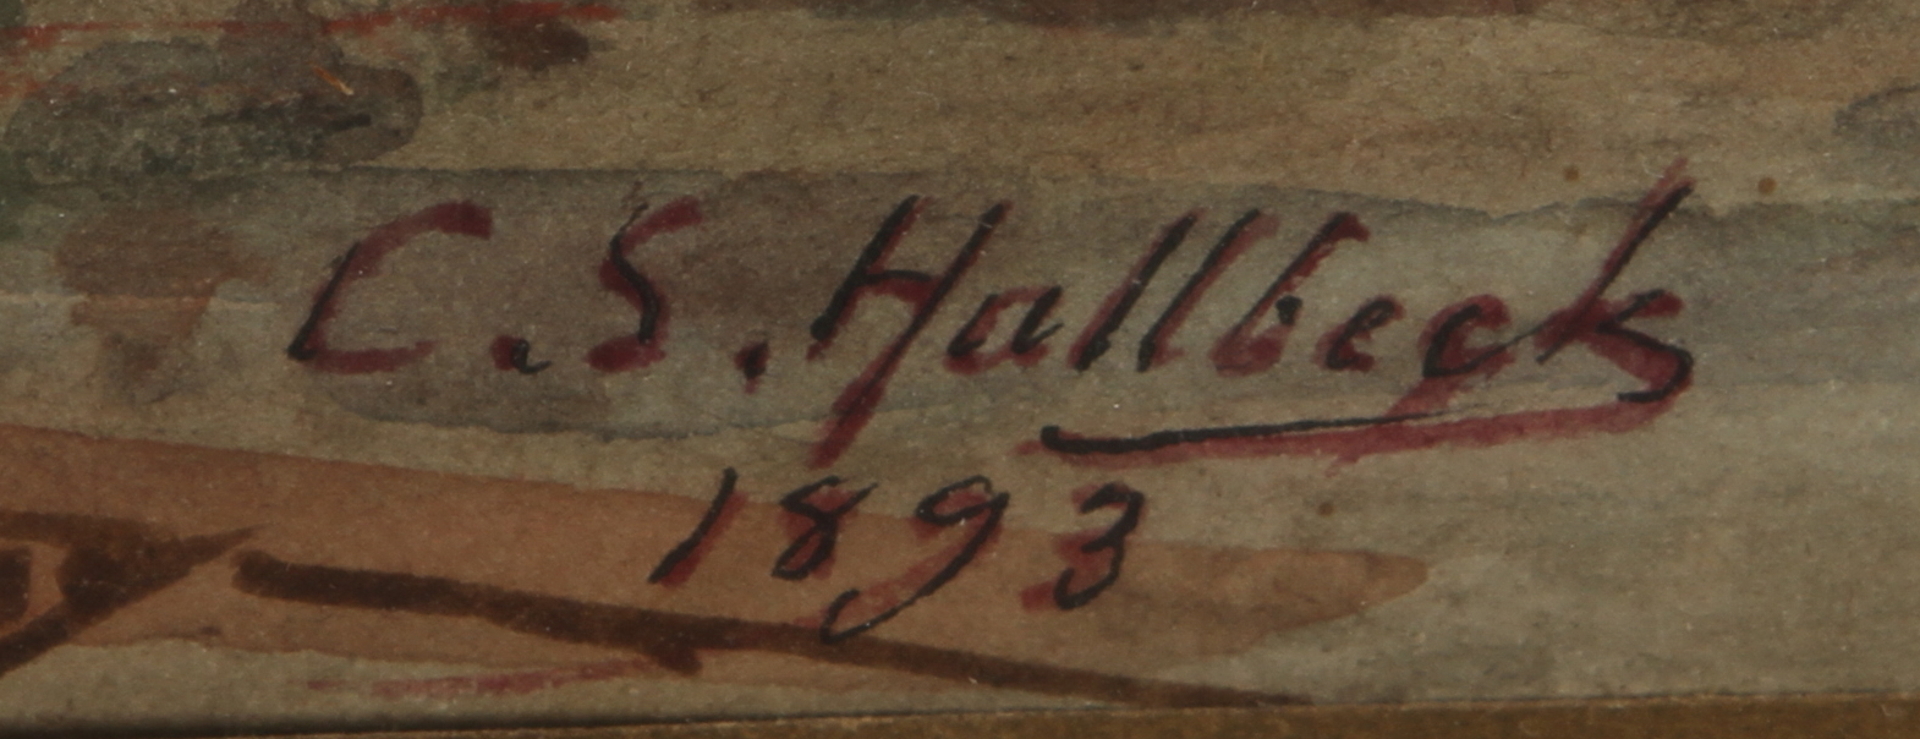 C.S. Hallbeck
1893